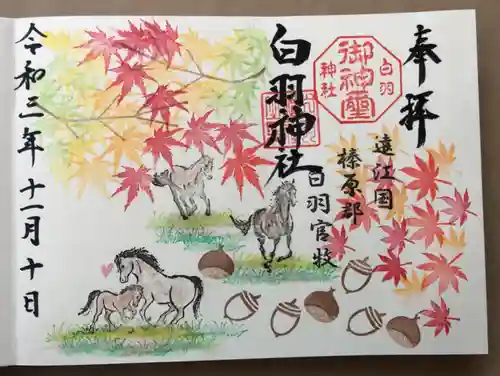 奉拝
白羽
御神璽
神社
遠江国
榛原郡
白羽神社
白羽官牧
令和三年十一月十日